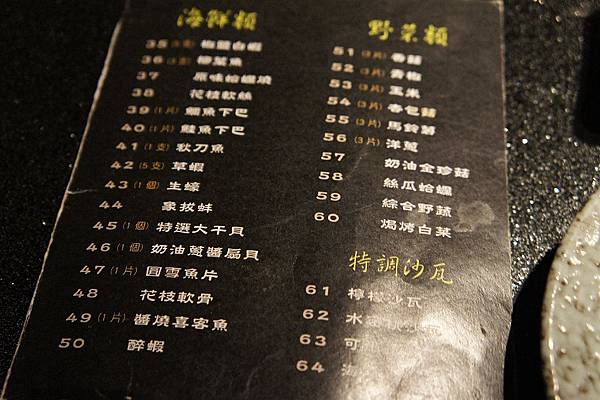 海鮮類
35 (5支) 椒鹽白蝦
36 柳葉魚
37 原味蛤蠣燒
38 花枝軟絲
39 (1片) 鯛魚下巴
40 (1片) 鮭魚下巴
41 (1支) 秋刀魚
42 (5支) 草蝦
43 (1個) 生蠔
44 象拔蚌
45 (1個) 特選大干貝
46 (1個) 奶油蔥醬扇貝
47 (1片) 圓雪魚片
48 花枝軟骨
49 (1片) 醬燒喜客魚
50 醉蝦
野菜類
51 (3片) 香菇
52 (3片) 青椒
53 (3片) 玉米
54 (3片) 杏包菇
55 (3片) 馬鈴薯
56 (3片) 洋蔥
57 奶油金珍菇
58 絲瓜蛤蠣
59 綜合野蔬
60 焗烤白菜
特調沙瓦
61 檸檬沙瓦
62 水蜜桃沙瓦
63 可
64